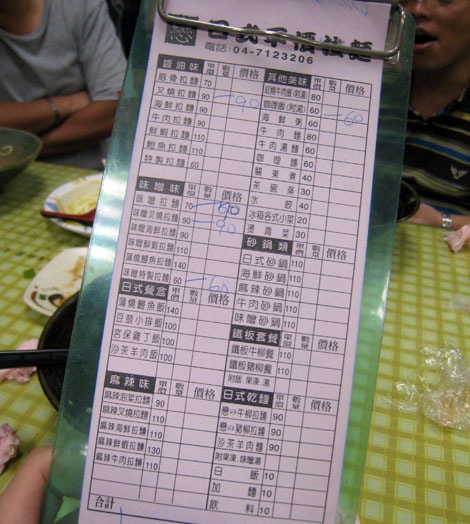 日式平價拉麵
電話:04-7123206
醬油味 單價 數量 價格
豚骨拉麵 70
叉燒拉麵 90 90
海鮮拉麵 90
牛肉拉麵 90
鮮蝦拉麵 110
鮑魚拉麵 110
特製拉麵 60
味噌味 單價 數量 價格
味噌拉麵 70
味噌叉燒拉麵 90 90
味噌海鮮拉麵 90
味噌鮮蝦拉麵 110
蒲燒鰻魚拉麵 140
味噌特製拉麵 60 60
日式餐盒 單價 數量 價格
蒲燒鰻魚飯 140
豆鼓小排飯 100
宮保雞丁飯 100
沙茶羊肉飯 100
麻辣味 單價 數量 價格
麻辣泡菜拉麵 90
麻辣叉燒拉麵 110
麻辣海鮮拉麵 110
麻辣鮮蝦拉麵 130
麻辣牛肉拉麵 110
合計
其他美味 單價 數量 價格
紅燒牛肉飯(附湯) 80
咖哩飯(附湯) 60
海鮮粥 60 60
牛肉麵 80
咖哩麵 60
關東煮 40
茶碗蒸 30
水餃 40
冰箱各式小菜 20
燙青菜 30
砂鍋類 單價 數量 價格
日式砂鍋 110
海鮮砂鍋 110
麻辣砂鍋 110
牛肉砂鍋 110
味噌砂鍋 110
鐵板套餐 單價 數量 價格
鐵板牛柳餐 110
鐵板豬柳餐 110
附飯.果凍.湯
日式乾麵 單價 數量 價格
戀の牛柳拉麵 90
戀の豬柳拉麵 90
沙茶羊肉麵 90
附果凍.味噌湯
白飯 10
加麵 10
飲料 10